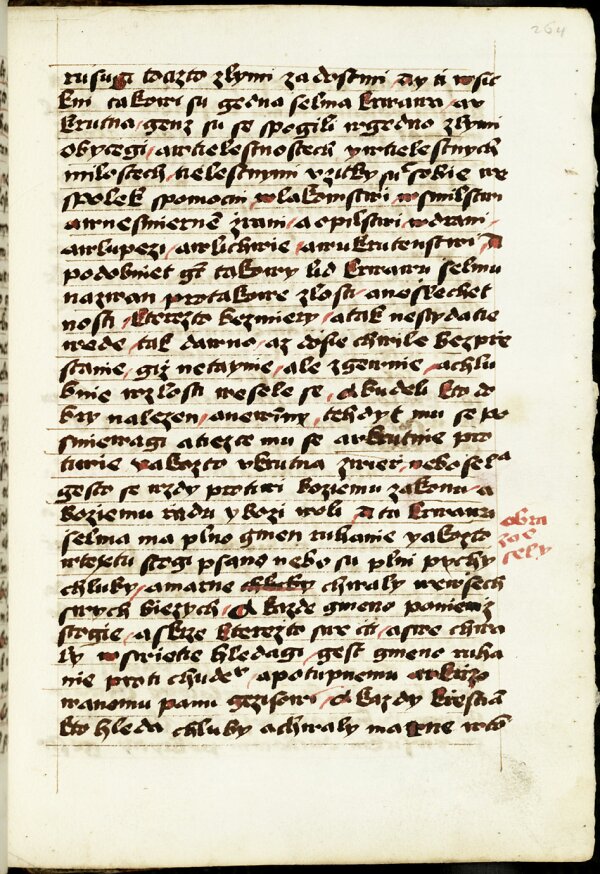 264
rusugi toczto zlymi zadostmi / Ay ti wsic
kni takowi su gedna selma krwawa / aw
krutna / genz su se spogili wgedno zlymi
obyczegi / awtielestnostech ywtielestnych
milostech / tielestnymi vzitky su sobie we
spolek spomocni / wlakomstwi / wsmilstwi
awnesmiernem zrani / aopilstwi / wdrani /
awlupezi / awlichwie / awukrutenstwi / A
podobniet gt takowy lid krwawu selmu
nazwan protakowe zlosti / aneslechet
nosti / kterezto bezmiery / atak nestydatie
wede / tak dawno / az dosie chwile bezpre
stanie / giz netaynie / ale zgewnie / achlu
bnie wzlosti wesele se / Akudeli kto do
bry nalezen / anewinny / tehdyt mu se po
smiewagi atiezce mu se awkrutnie pro
tiwie yakozto vkrutna zwier / neboscla
gesto se wzdy protiwi boziemu zakonu / a
boziemu radu ybozi woli / A ta krwawa
selma ma plno gmen ruhanie yakozto
wtetetu stogi psano nebo su plni pychy
chluby / amarne chwaly wewsech
swych biezych / A kazde gmeno poniewz
stogie / askrze kterezto swe cti / aswe chwa
ly wswietie hledagi / gest gmeno ruha
nie proti chudeu / apotupnemu aukrizo
wanomu panu gezisowi / A kazdy krestian
kto hleda chluby achwaly marne wto
obra
zoe
sely